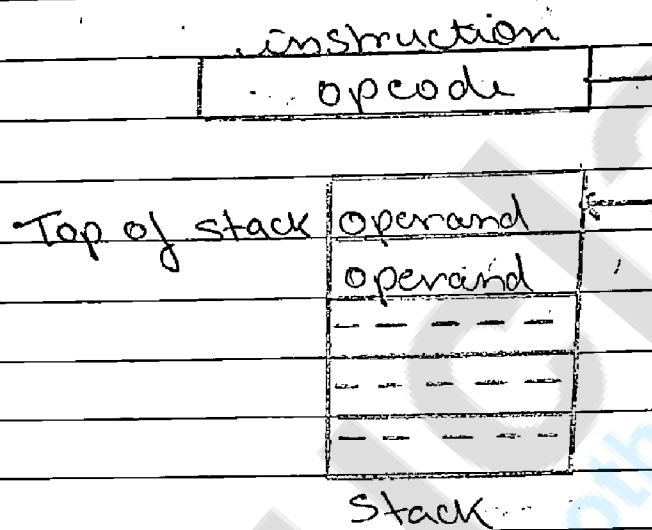 instruction
opcode
Top of stack operand
operand
Stack